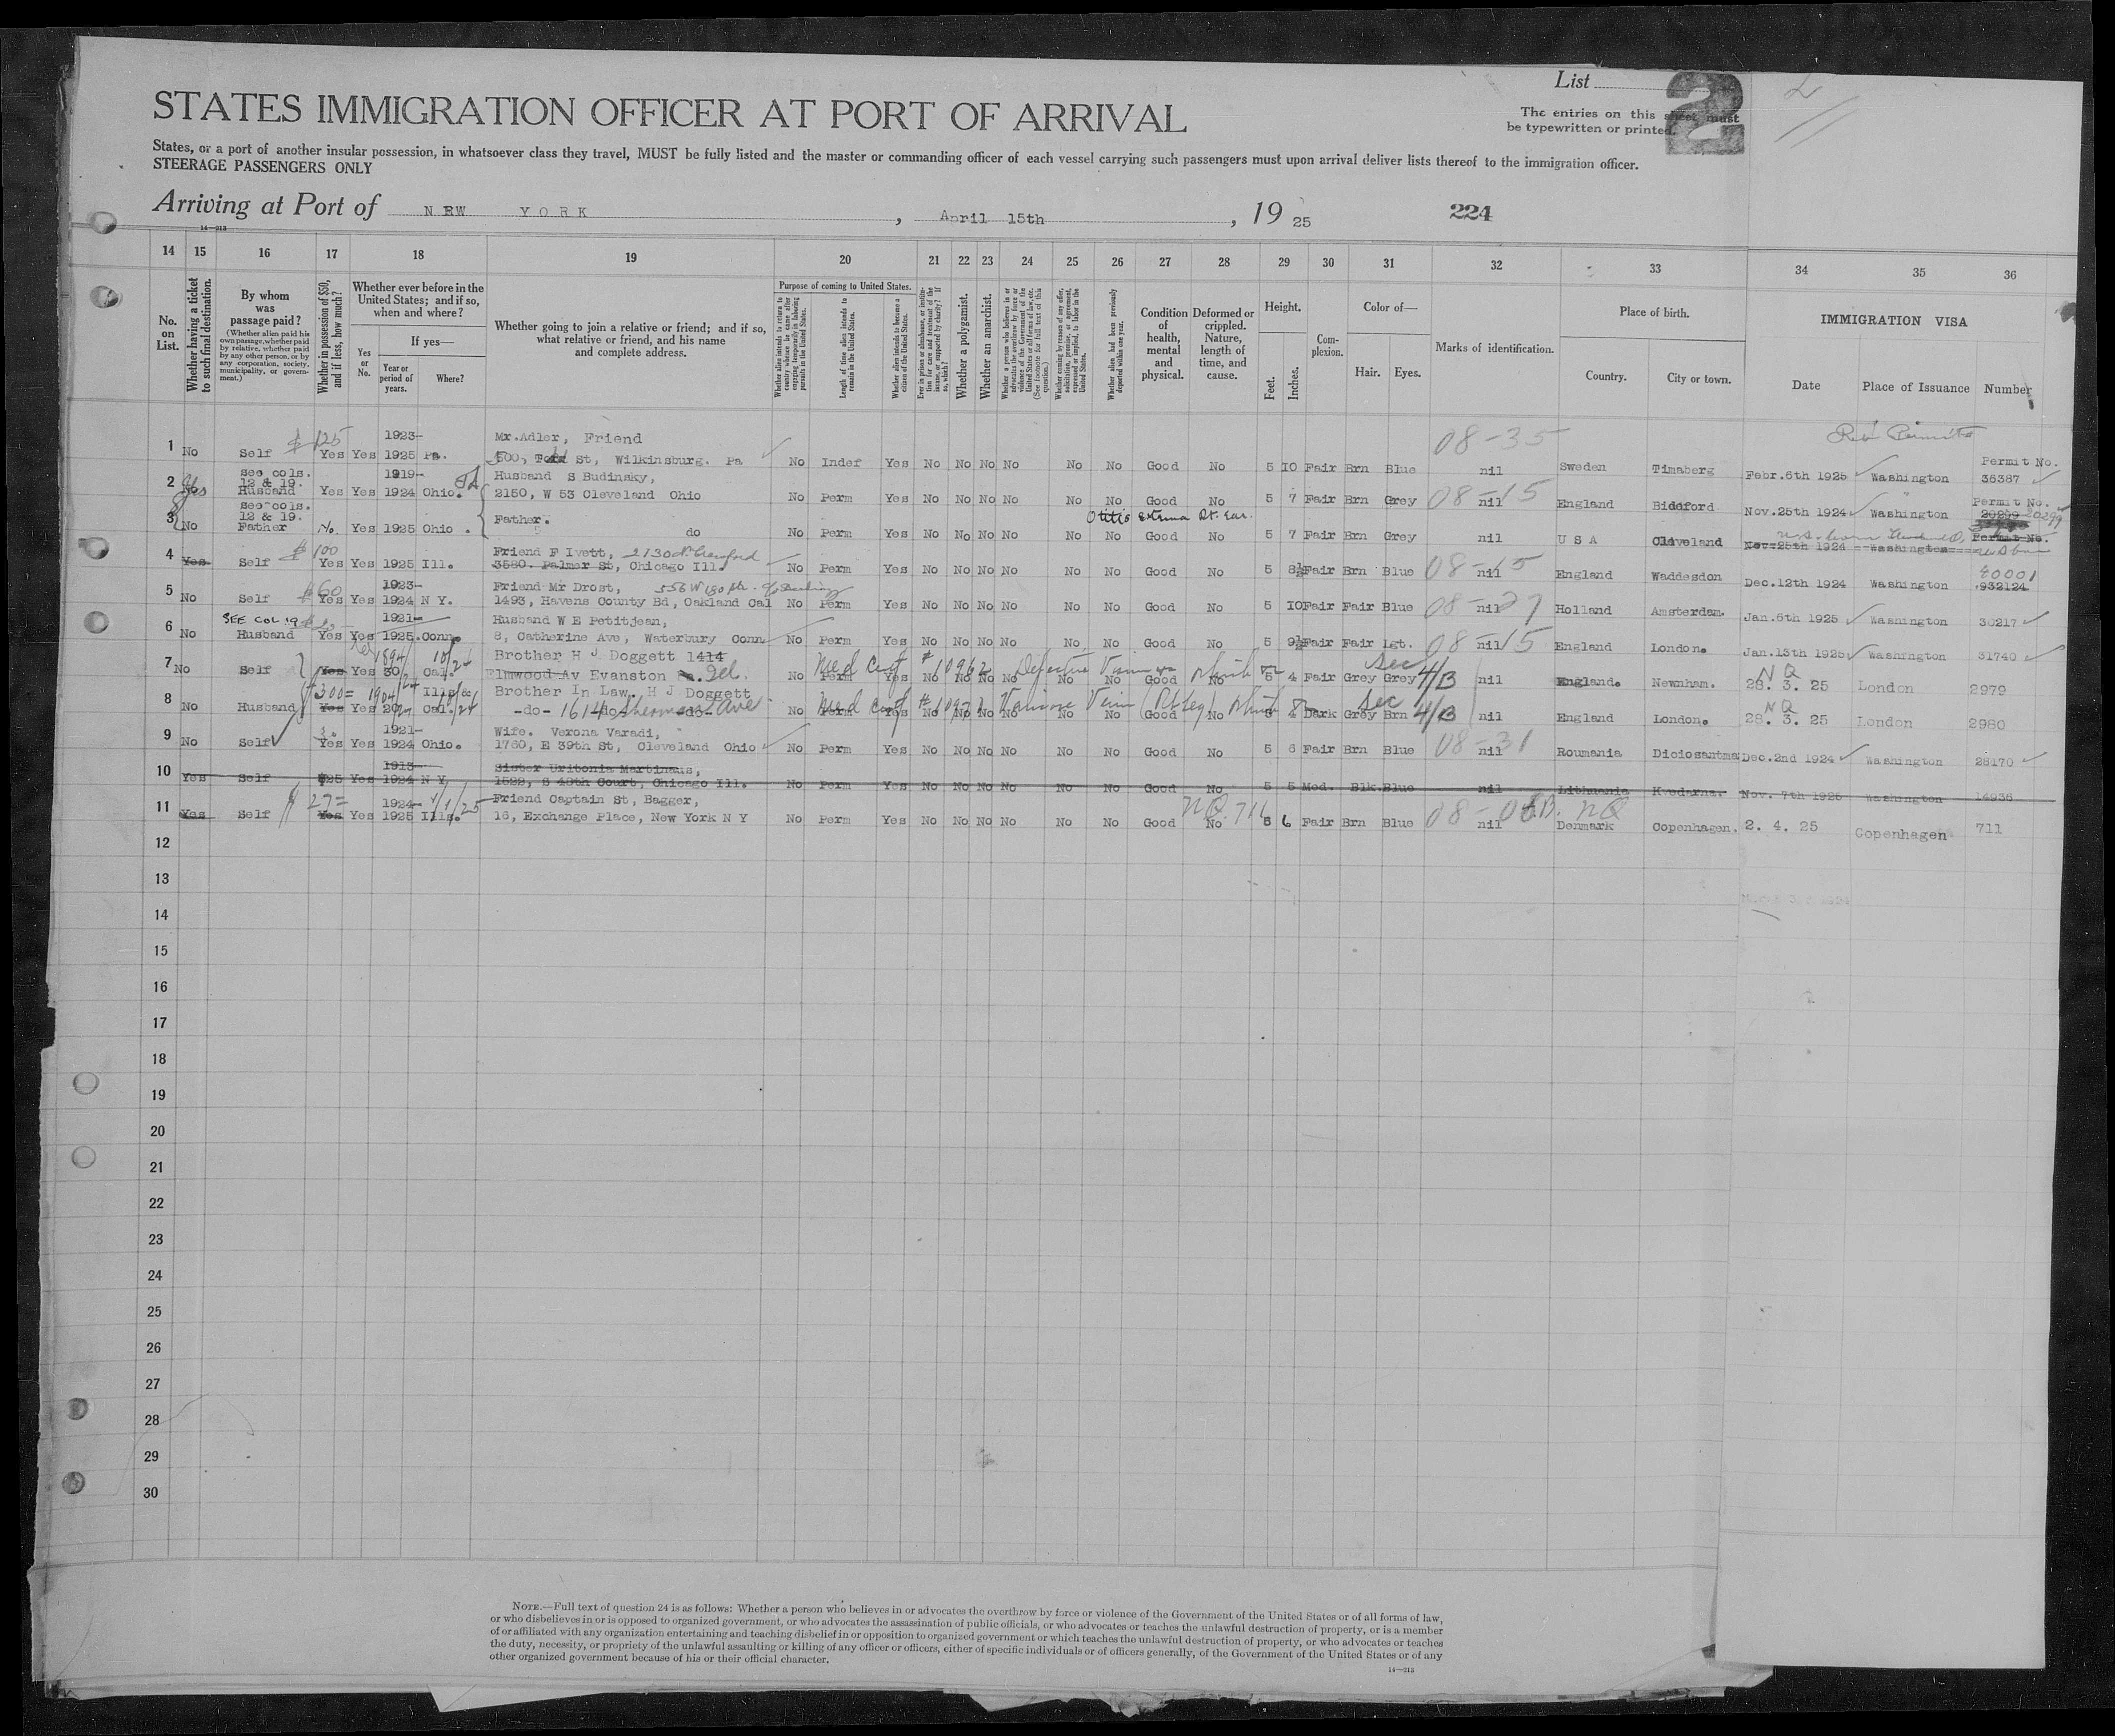 List 2
The entries on this sheet must
be typewritten or printed.
STATES IMMIGRATION OFFICER AT PORT OF ARRIVAL
States, or a port of another insular possession, in whatsoever class they travel, MUST be fully listed and the master or commanding officer of each vessel carrying such passengers must upon arrival deliver lists thereof to the immigration officer.
STEERAGE PASSENGERS ONLY
Arriving at Port of NEW YORK, April 15th, 19 25 224
14—213
14 15 16 17 18 19 20 21 22 23 24 25 26 27 28 29 30 31 32 33 34 35 36
No. on List.
Whether having a ticket to such final destination.
By whom was passage paid?
(Whether alien paid his own passage, whether paid by relative, whether paid by any other person, or by any corporation, society, municipality, or government.)
Whether in possession of $50, and if less, how much?
Whether ever before in the United States; and if so, when and where?
Yes or No.
If yes—
Year or period of years.
Where?
Whether going to join a relative or friend; and if so, what relative or friend, and his name and complete address.
Purpose of coming to United States.
Whether alien intends to return to country whence he came after engaging temporarily in laboring pursuits in the United States.
Length of time alien intends to remain in the United States.
Whether alien intends to become a citizen of the United States.
Ever in prison or almshouse, or institution for care and treatment of the insane, or supported by charity? If so, which?
Whether a polygamist.
Whether an anarchist.
Whether coming by reason of any offer, solicitation, promise, or agreement, expressed or implied, to labor in the United States.
Whether alien had been previously deported within one year.
Condition of health, mental and physical.
Deformed or crippled. Nature, length of time, and cause.
Height.
Feet.
Inches.
Complexion.
Color of—
Hair.
Eyes.
Marks of identification.
Place of birth.
Country.
City or town.
IMMIGRATION VISA
Date
Place of Issuance
Number
1 No Self $125 Yes Yes 1923- 1925 Pa. Mr.Adler, Friend
500, St, Wilkinsburg. Pa No Indef Yes No No No No No No Good No 5 10 Fair Brn Blue 08-35 nil Sweden Timsberg Febr.5th 1925 Washington Permit No. 35387
2 Yes see cols. 12 & 19. Husband Yes Yes 1919- 1924 Ohio. Husband S Budinsky,
2150, W 53 Cleveland Ohio No Perm Yes No No No No No No Good No 5 7 Fair Brn Grey 08-15 nil England Bideford Nov.25th 1924 Washington Permit No. 20299
3 No see cols. 12 & 19. Father No. Yes 1925 Ohio. Father.
do No Perm Yes No No No No No No Good No Otitis Externa Rt. Ear. 5 7 Fair Brn Grey nil U S A Cleveland Nov.25th 1924 Washington Permit No.
4 Yes Self $100 Yes Yes 1925 Ill. Friend F Ivett, 2130 N. Crawford
3580. Palmer St, Chicago Ill No Perm Yes No No No No No No Good No 5 8½ Fair Brn Blue 08-15 nil England Waddesdon Dec.12th 1924 Washington 40001 932124
5 No Self $60 Yes Yes 1923- 1924 N Y. Friend Mr Drost,
1493, Havens County Bd, Oakland Cal No Perm Yes No No No No No No Good No 5 10 Fair Fair Blue 08-27 nil Holland Amsterdam. Jan.5th 1925 Washington 30217
6 No SEE COL 19 Husband Yes Yes 1921- 1925. Conn. Husband W E Petitjean,
8, Catherine Ave, Waterbury Conn No Perm Yes No No No No No No Good No 5 9½ Fair Fair Lgt. 08-15 nil England London. Jan.13th 1925 Washington 31740
7 No Self Yes Yes 1894/ 30 Cal. 10/24 Brother H J Doggett 1414
Elmwood Av Evanston Ill. No Perm Yes No No No No No No Good No Med Cert #10962 Defective Vision 5 4 Fair Grey Grey sec 4/B nil England. Newnham. NQ 28. 3. 25 London 2979
8 No Husband $300= Yes Yes 1904/ 20 Ills & Cal. Brother In Law. H J Doggett
-do- 1614 Sherman Ave -do- No Perm Yes No No No No No No Good No Med Cert Varicose Vein (Rt Leg) 5 4 Dark Grey Brn sec 4/B nil England London. NQ 28. 3. 25 London 2980
9 No Self Yes Yes 1921- 1924 Ohio. Wife. Verona Varadi,
1760, E 39th St, Cleveland Ohio No Perm Yes No No No No No No Good No 5 6 Fair Brn Blue 08-31 nil Roumania Diciosantma Dec.2nd 1924 Washington 28170
10 Yes Self $25 Yes 1913- 1924 N Y, Sister Uritonia Martinaus,
1522, S 49th Court, Chicago Ill. No Perm Yes No No No No No No Good No 5 5 Med. Blk. Blue nil Lithuania Kvedarna. Nov. 7th 1925 Washington 14936
11 Yes Self $27= Yes Yes 1924- 1925 Ills. 1/1/25 Friend Captain St, Bagger,
16, Exchange Place, New York N Y No Perm Yes No No No No No No Good No NQ.716 5 6 Fair Brn Blue nil NQ Denmark Copenhagen. 2. 4. 25 Copenhagen 711
12
13
14
15
16
17
18
19
20
21
22
23
24
25
26
27
28
29
30
NOTE.—Full text of question 24 is as follows: Whether a person who believes in or advocates the overthrow by force or violence of the Government of the United States or of all forms of law,
or who disbelieves in or is opposed to organized government, or who advocates the assassination of public officials, or who advocates or teaches the unlawful destruction of property, or is a member
of or affiliated with any organization entertaining and teaching disbelief in or opposition to organized government or which teaches the unlawful destruction of property, or who advocates or teaches
the duty, necessity, or propriety of the unlawful assaulting or killing of any officer or officers, either of specific individuals or of officers generally, of the Government of the United States or of any
other organized government because of his or their official character.
14—213